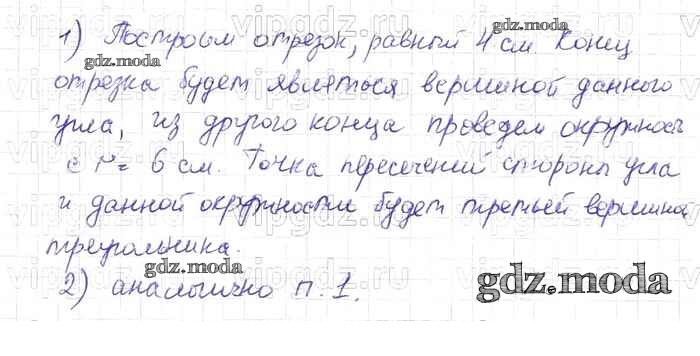 1) Построим отрезок, равный 4 см. Конец
gdz.moda
отрезка будет являться вершиной данного
угла, из другого конца проведем окружность
с r = 6 см. Точка пересечений стороны угла
и данной окружности будет третьей вершина
треугольника.
gdz.moda
2) аналогично п. 1.
gdz.moda
gdz.moda
vipgdz.ru